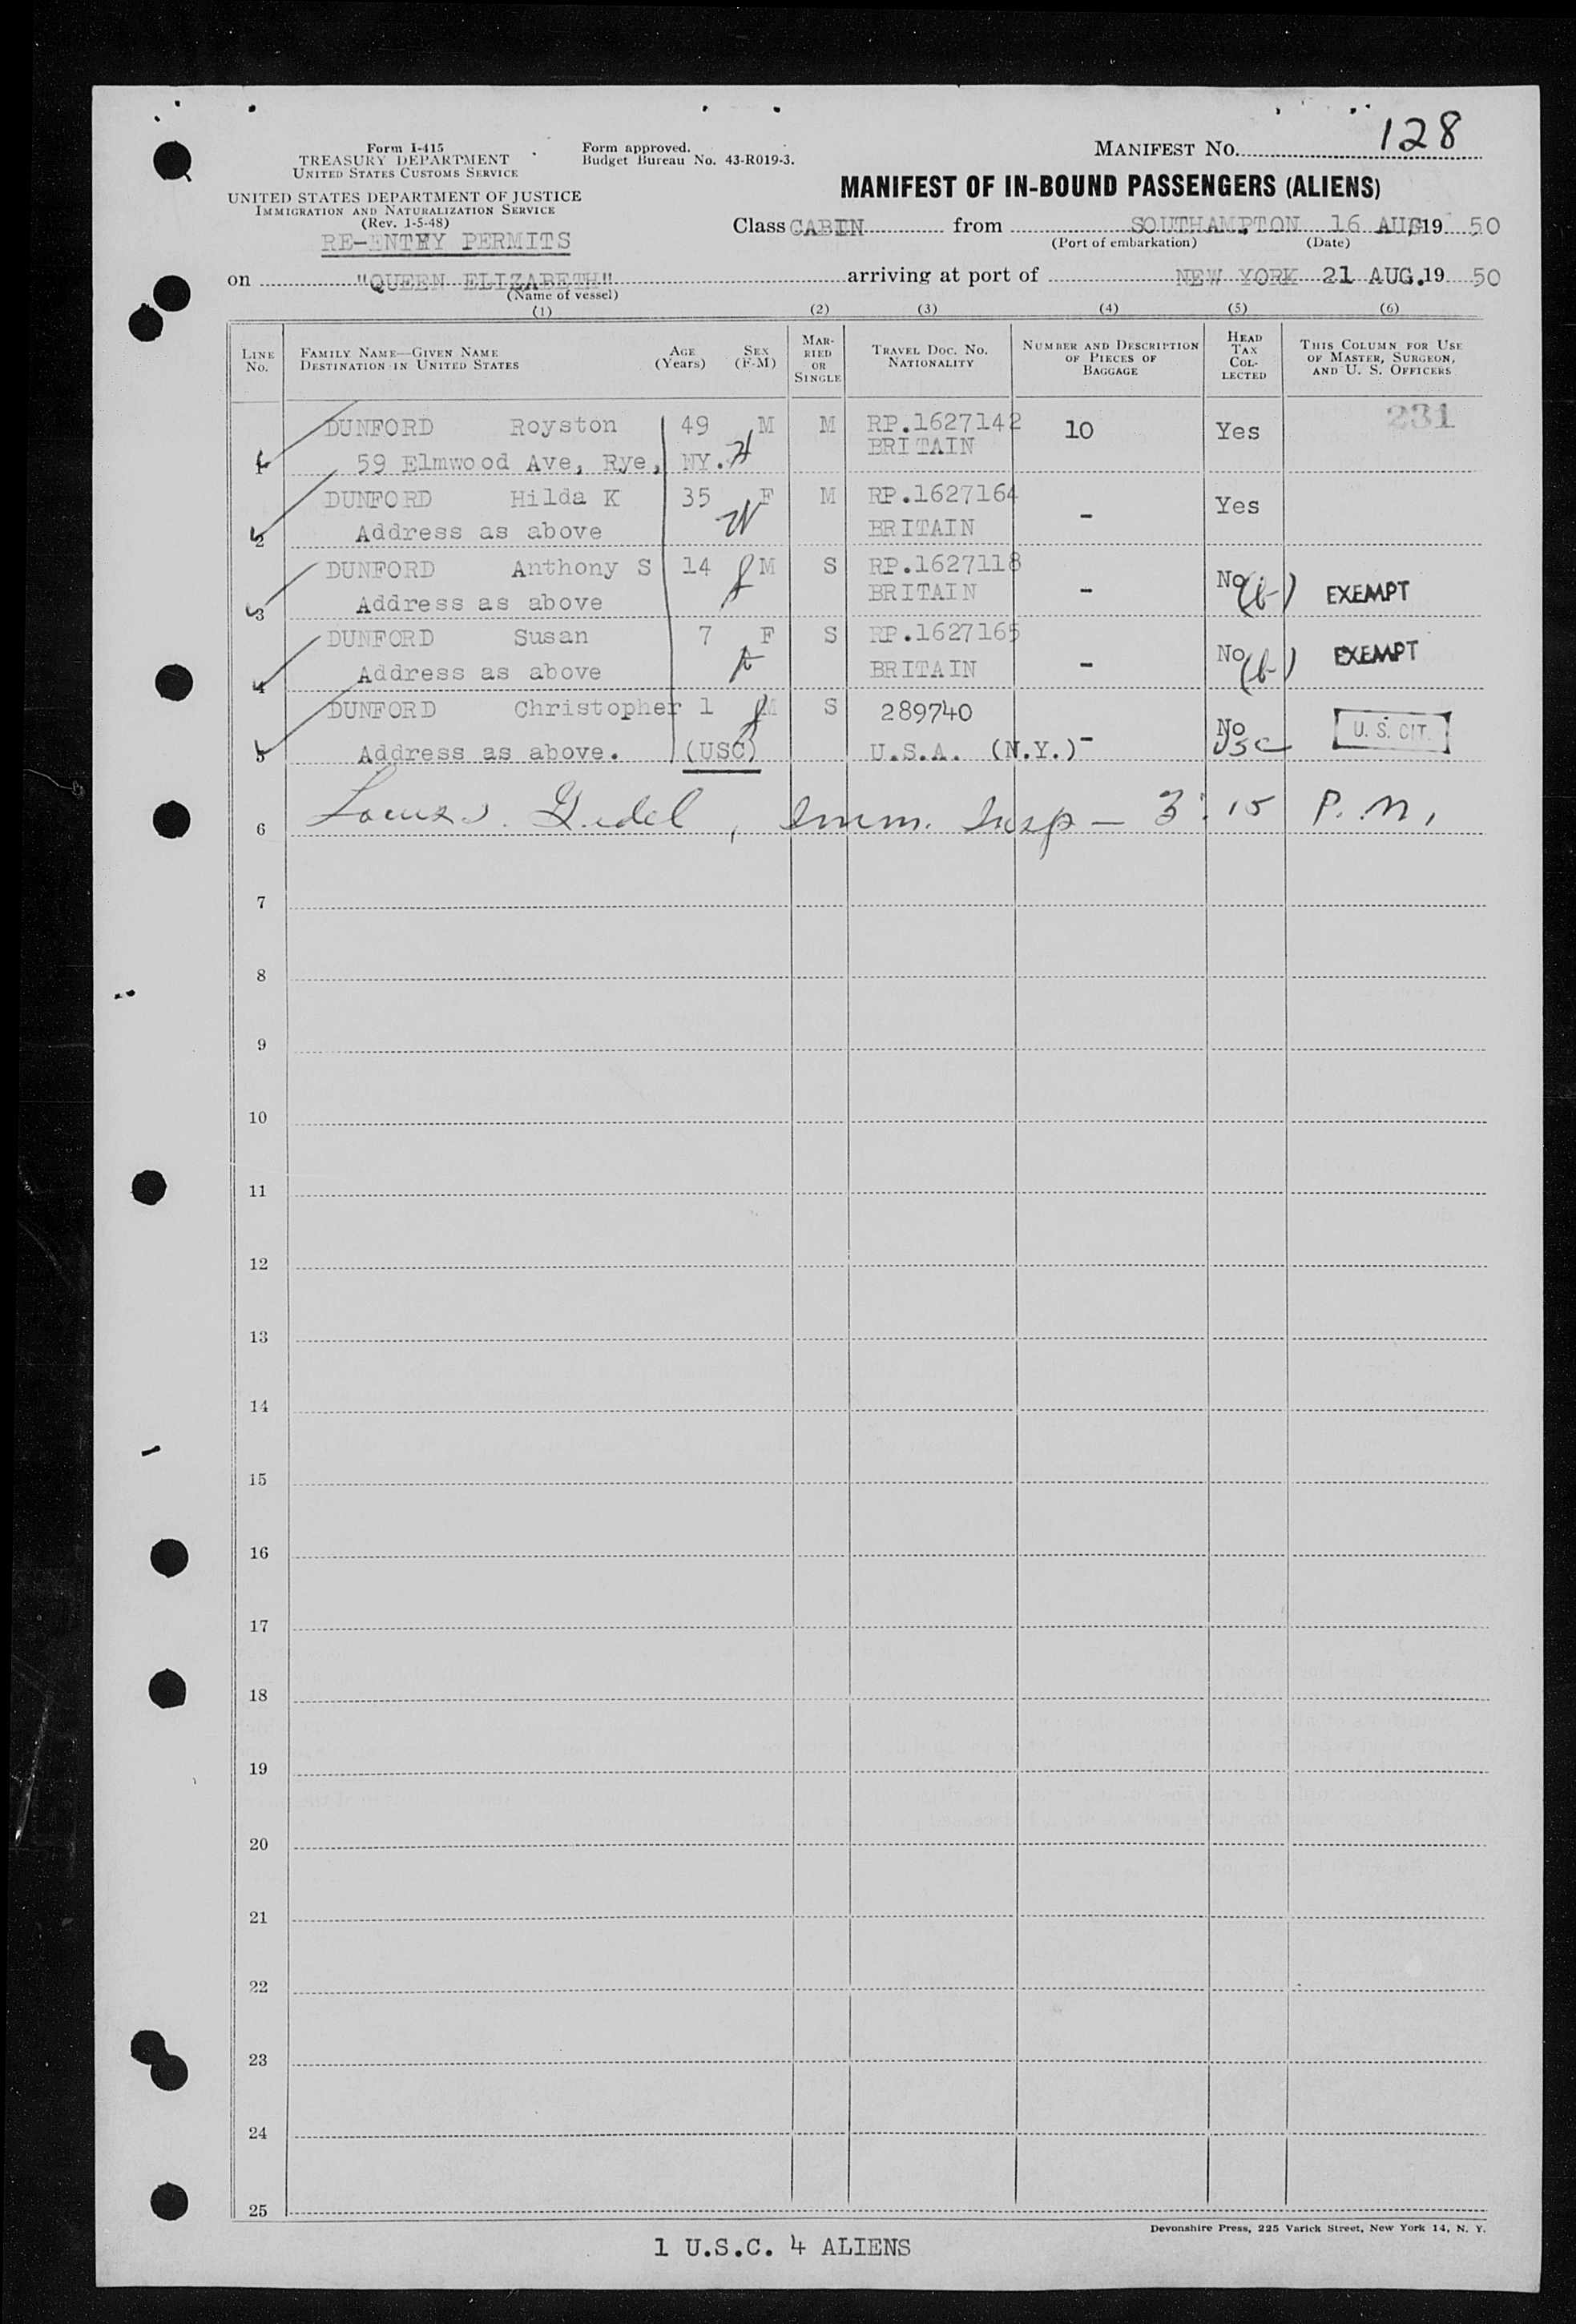 128
Form I-415
TREASURY DEPARTMENT
UNITED STATES CUSTOMS SERVICE
Form approved.
Budget Bureau No. 43-R019-3.
MANIFEST NO.
UNITED STATES DEPARTMENT OF JUSTICE
IMMIGRATION AND NATURALIZATION SERVICE
(Rev. 1-5-48)
RE-ENTRY PERMITS
MANIFEST OF IN-BOUND PASSENGERS (ALIENS)
Class CABIN from SOUTHAMPTON 16 AUG 19 50
(Port of embarkation) (Date)
on "QUEEN ELIZABETH" arriving at port of NEW YORK 21 AUG. 19 50
(Name of vessel)
(1) (2) (3) (4) (5) (6)
LINE No.
FAMILY NAME—GIVEN NAME
DESTINATION IN UNITED STATES
AGE (Years)
SEX (F-M)
MARRIED OR SINGLE
TRAVEL DOC. NO.
NATIONALITY
NUMBER AND DESCRIPTION OF PIECES OF BAGGAGE
HEAD TAX COLLECTED
THIS COLUMN FOR USE OF MASTER, SURGEON, AND U. S. OFFICERS
231
1 DUNFORD Royston 49 M M RP.1627142 10 Yes
59 Elmwood Ave, Rye, NY. BRITAIN
2 DUNFORD Hilda K 35 F M RP.1627164 - Yes
Address as above BRITAIN
3 DUNFORD Anthony S 14 M S RP.1627118 - No (b) EXEMPT
Address as above BRITAIN
4 DUNFORD Susan 7 F S RP.1627165 - No (b) EXEMPT
Address as above BRITAIN
5 DUNFORD Christopher 1 M S 289740 - No USC U. S. CIT.
Address as above. (USC) U.S.A. (N.Y.)
6 Imm. Insp — 3:15 P.M.
7
8
9
10
11
12
13
14
15
16
17
18
19
20
21
22
23
24
25
Devonshire Press, 225 Varick Street, New York 14, N. Y.
1 U.S.C. 4 ALIENS